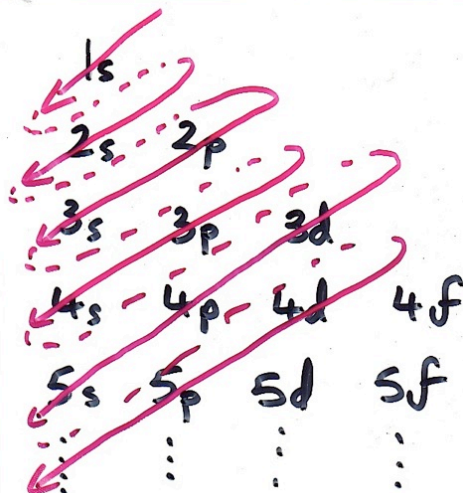 1s
2s 2p
3s 3p 3d
4s 4p 4d 4f
5s 5p 5d 5f